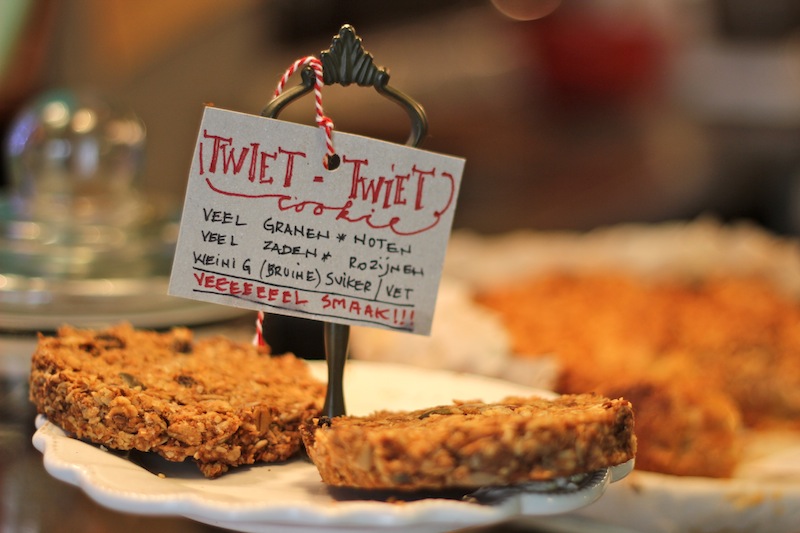 TWIET - TWIET
cookie
VEEL GRANEN * NOTEN
VEEL ZADEN * ROZIJNEN
WEINIG (BRUINE) SUIKER / VET
VEEEEEEL SMAAK!!!